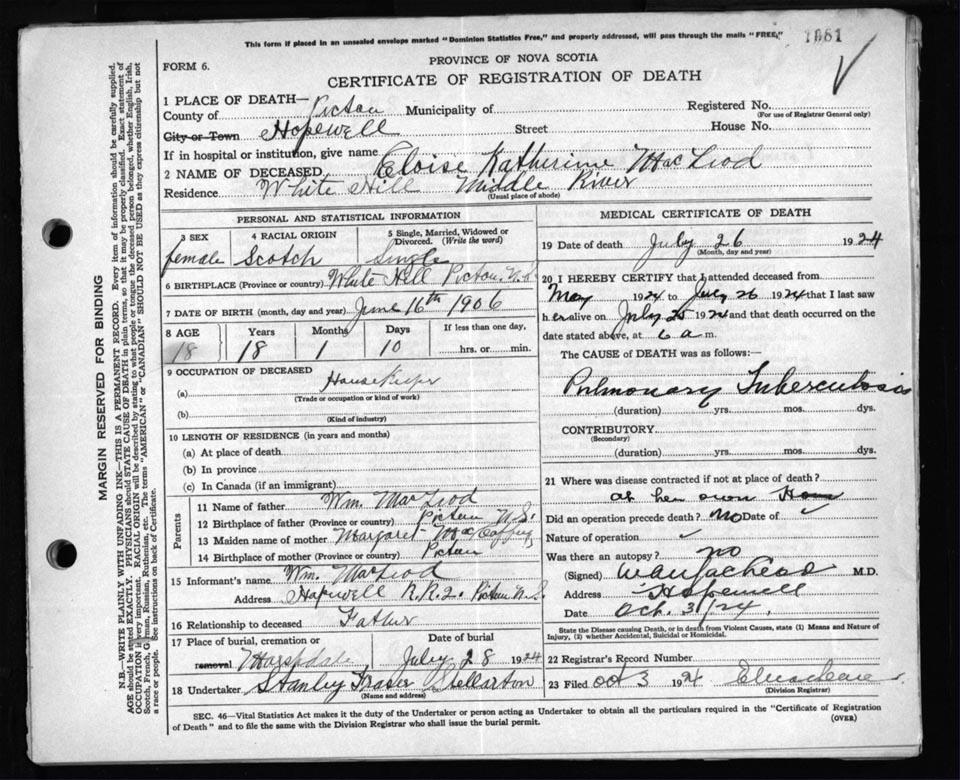 This form if placed in an unsealed envelope marked "Dominion Statistics Free," and properly addressed, will pass through the mails "FREE."
1081
FORM 6.
PROVINCE OF NOVA SCOTIA
CERTIFICATE OF REGISTRATION OF DEATH
1 PLACE OF DEATH—
County of Pictou Municipality of Registered No.
(For use of Registrar General only)
City or Town Hopewell Street House No.
If in hospital or institution, give name
2 NAME OF DECEASED Eloise Katherine MacLeod
Residence White Hill Middle River
(Usual place of abode)
PERSONAL AND STATISTICAL INFORMATION
3 SEX 4 RACIAL ORIGIN 5 Single, Married, Widowed or Divorced. (Write the word)
female Scotch Single
6 BIRTHPLACE (Province or country) White Hill Pictou. N.S.
7 DATE OF BIRTH (month, day and year) June 16th 1906
8 AGE Years Months Days If less than one day,
18 18 1 10 hrs. or min.
9 OCCUPATION OF DECEASED
(a) Housekeeper
(Trade or occupation or kind of work)
(b)
(Kind of industry)
10 LENGTH OF RESIDENCE (in years and months)
(a) At place of death
(b) In province
(c) In Canada (if an immigrant)
Parents
11 Name of father Wm. MacLeod
12 Birthplace of father (Province or country) Pictou N.S.
13 Maiden name of mother Margaret
14 Birthplace of mother (Province or country) Pictou
15 Informant's name Wm. MacLeod
Address Hopewell R.R.2. Pictou N.S.
16 Relationship to deceased Father
17 Place of burial, cremation or Date of burial
removal July 28 1924
18 Undertaker Stanley Fraser Stellarton
(Name and address)
MEDICAL CERTIFICATE OF DEATH
19 Date of death July 26 1924
(Month, day and year)
20 I HEREBY CERTIFY that I attended deceased from
May 1924 to July 26 1924 that I last saw
her alive on July 25 1924 and that death occurred on the
date stated above, at 6 a m.
The CAUSE OF DEATH was as follows:
Pulmonary Tuberculosis
(duration) yrs. mos. dys.
CONTRIBUTORY
(Secondary)
(duration) yrs. mos. dys.
21 Where was disease contracted if not at place of death?
at her own Home
Did an operation precede death? No Date of ✓
Nature of operation ✓
Was there an autopsy? no
(Signed) M.D.
Address Hopewell
Date Oct. 31/24.
State the Disease causing Death, or in death from Violent Causes, state (1) Means and Nature of Injury, (2) whether Accidental, Suicidal or Homicidal.
22 Registrar's Record Number
23 Filed Oct 3 1924
(Division Registrar)
SEC. 46—Vital Statistics Act makes it the duty of the Undertaker or person acting as Undertaker to obtain all the particulars required in the "Certificate of Registration
of Death" and to file the same with the Division Registrar who shall issue the burial permit. (OVER)
MARGIN RESERVED FOR BINDING
N.B.—WRITE PLAINLY WITH UNFADING INK—THIS IS A PERMANENT RECORD. Every item of information should be carefully supplied.
AGE should be stated EXACTLY. PHYSICIANS should STATE CAUSE OF DEATH in plain terms, so that it may be properly classified. Exact statement of
OCCUPATION is very important. RACIAL ORIGIN will be described by stating to what people or tongue the deceased person belonged, whether English, Irish,
Scotch, French, German, Russian, Ruthenian, etc. The terms "AMERICAN" or "CANADIAN" SHOULD NOT BE USED as they express citizenship but not
a race or people. See instructions on back of Certificate.